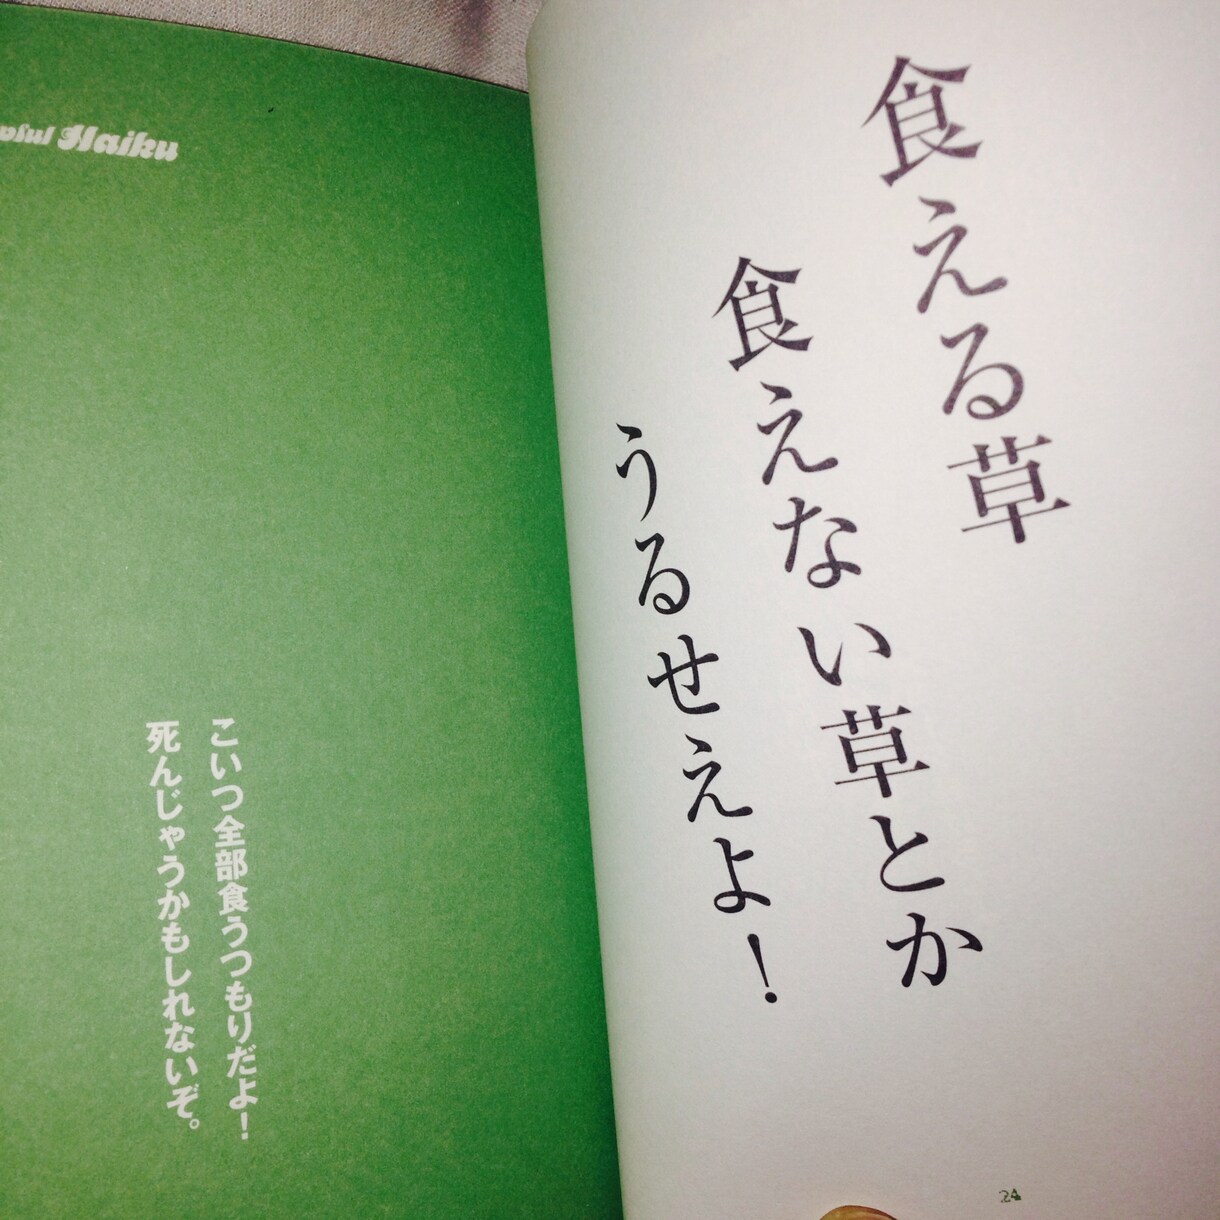 食える草
食えない草とか
うるせえよ！
24
Haiku
こいつ全部食うつもりだよ！
死んじゃうかもしれないぞ。